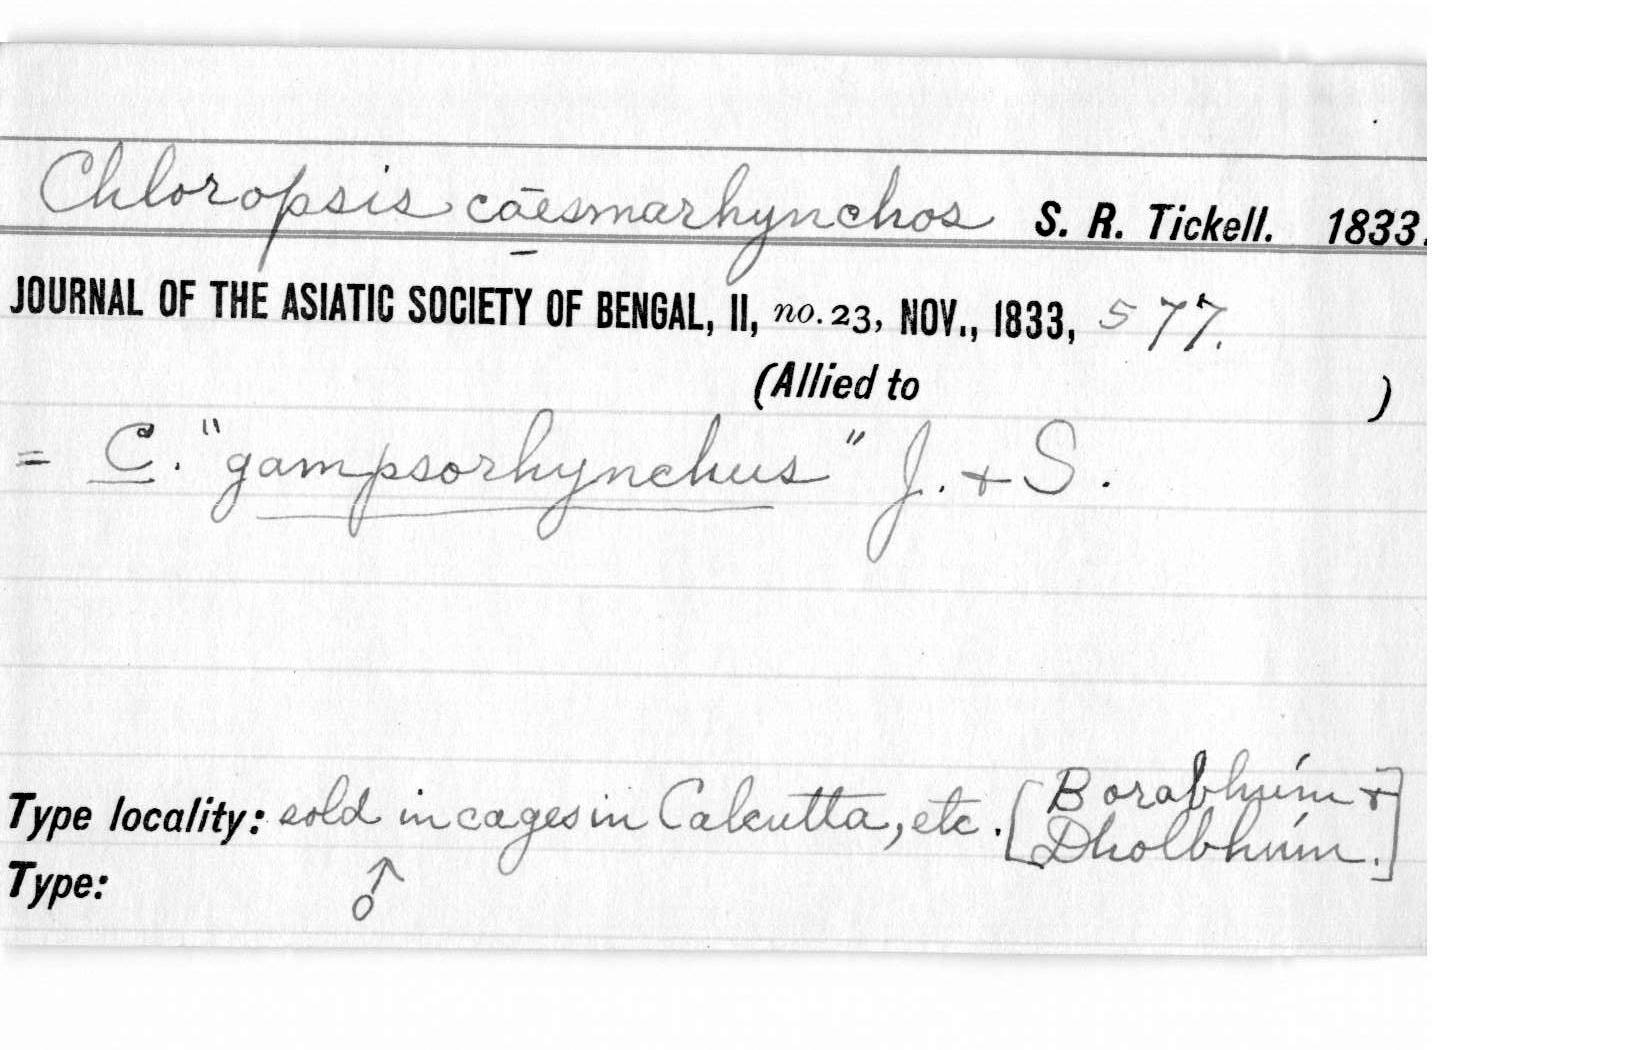 Chloropsis cāesmarhynchos S. R. Tickell. 1833.
JOURNAL OF THE ASIATIC SOCIETY OF BENGAL, II, no. 23, NOV., 1833, 577.
(Allied to )
= C. "gampsorhynchus" J. + S.
Type locality: sold in cages in Calcutta, etc. [Borabhúm + Dholbhúm.]
Type: ♂